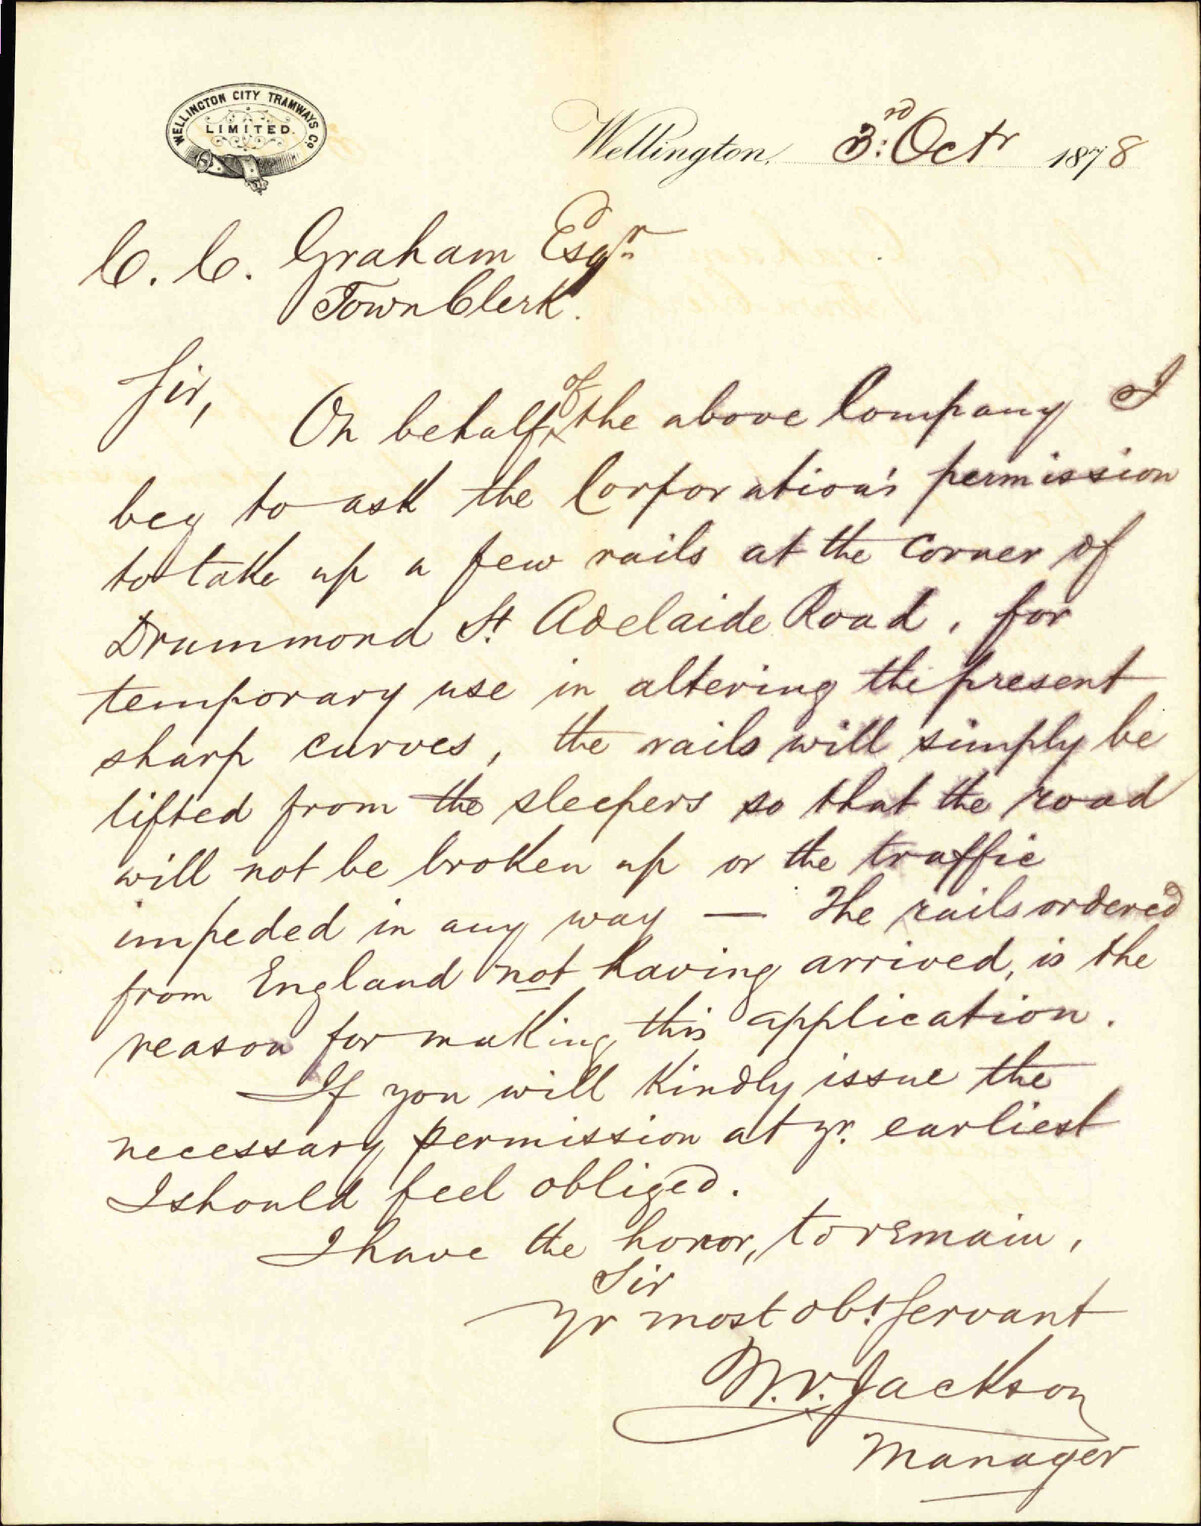 WELLINGTON CITY TRAMWAYS Co
LIMITED.
Wellington, 3rd: Octr 1878
C. C. Graham Esqr
Town Clerk.
Sir,
On behalf of the above Company I
beg to ask the Corporation's permission
to take up a few rails at the corner of
Drummond St. Adelaide Road, for
temporary use in altering the present
sharp curves, the rails will simply be
lifted from the sleepers so that the road
will not be broken up or the traffic
impeded in any way — The rails ordered
from England not having arrived, is the
reason for making this application.
If you will kindly issue the
necessary permission at yr. earliest
I should feel obliged.
I have the honor, to remain,
Sir
Yr most obt. Servant
Jackson
Manager